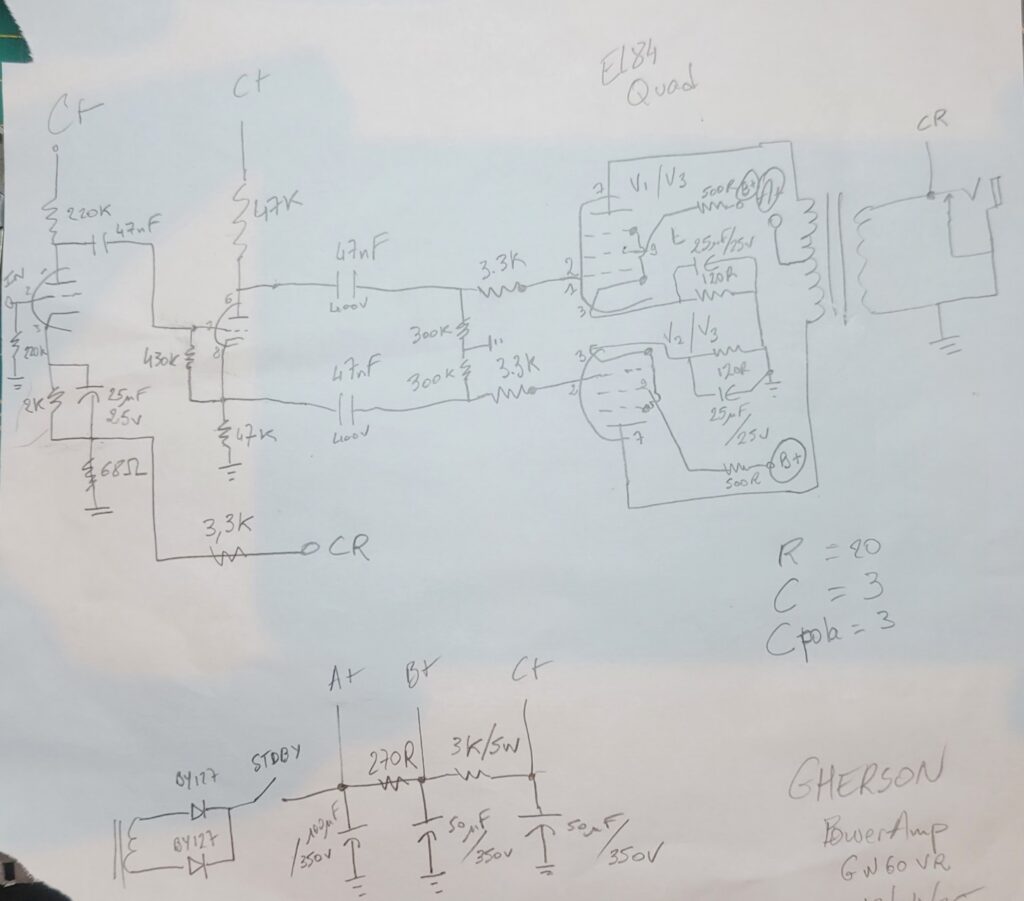 EL84
Quad
C+
C+
CR
220K
47nF
47K
IN
1
2
3
220K
2K
25µF
25V
68Ω
430K
6
7
8
47K
3,3K
CR
47nF
400V
47nF
400V
300K
300K
3.3K
3.3K
7
V1/V3
500R
B+
A+
9
2
3
25µF/25V
120R
V2/V3
3
2
9
7
120R
25µF
/25V
500R
B+
R = 20
C = 3
Cpola = 3
A+
B+
C+
STDBY
BY127
BY127
270R
3K/5W
100µF
/350V
50µF
/350V
50µF
/350V
GHERSON
PowerAmp
GW60VR